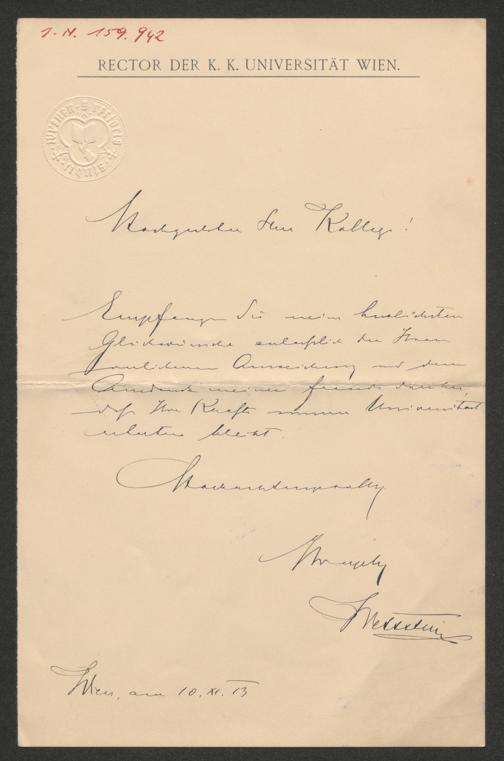 I. N. 159.942
RECTOR DER K. K. UNIVERSITÄT WIEN.
Hochgeehrter Herr Kollege!
Empfangen Sie meine herzlichsten
Glückwünsche anlässlich der Ihnen
verliehenen Auszeichnung und den
Ausdruck meiner Freude darüber,
daß Ihre Kraft unserer Universität
erhalten bleibt.
Hochachtungsvollst
Ihr ergebener
Wettstein
Wien, am 10. XI. 13